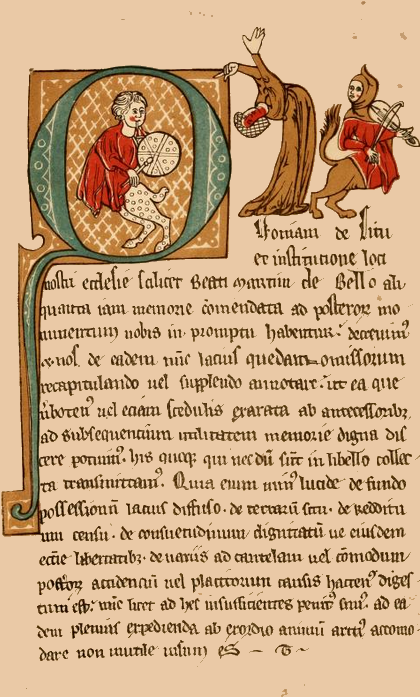 Quoniam de situ
et institutione loci
nostri ecclesie scilicet Beati Martini de Bello ali
quanta iam memorie comendata ad posteros mo
numentum nobis in promptu habentur: decrevim9
& nos de eadem nunc latius quedam omissorum
recapitulando vel supplendo annotare. ut ea que
vel eciam scedulis exarata ab antecessorib3
ad subsequentium utilitatem memorie digna dis
cere potuim9. his quoq3 qui necdu sut in libello collec
ta transmittam9. Quia enim lucide de fundo
possessionu latius diffuso. de terraru situ. de redditu
um censu. de consuetudinum dignitatu ve eiusdem
eccie libertatib3. de variis ad cautelam vel comodum
accidenciu vel placitorum causis hacten9 diges
tum est: nunc licet ad hec insufficientes penit9 sim9. ad ea
dem plenius expedienda ab exordio animu arti accomo
dare non inutile